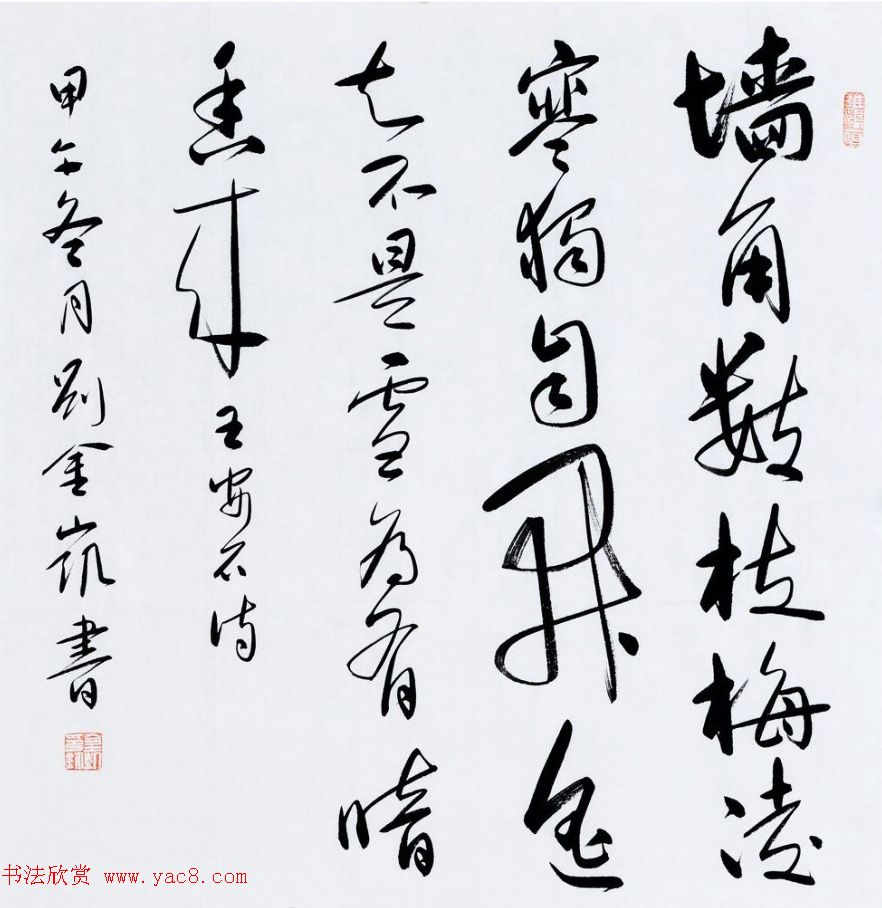 墙角数枝梅凌
寒独自开遥
知不是雪为有暗
香来 王安石诗
甲午冬月刘金凯书
书法欣赏 www.yac8.com